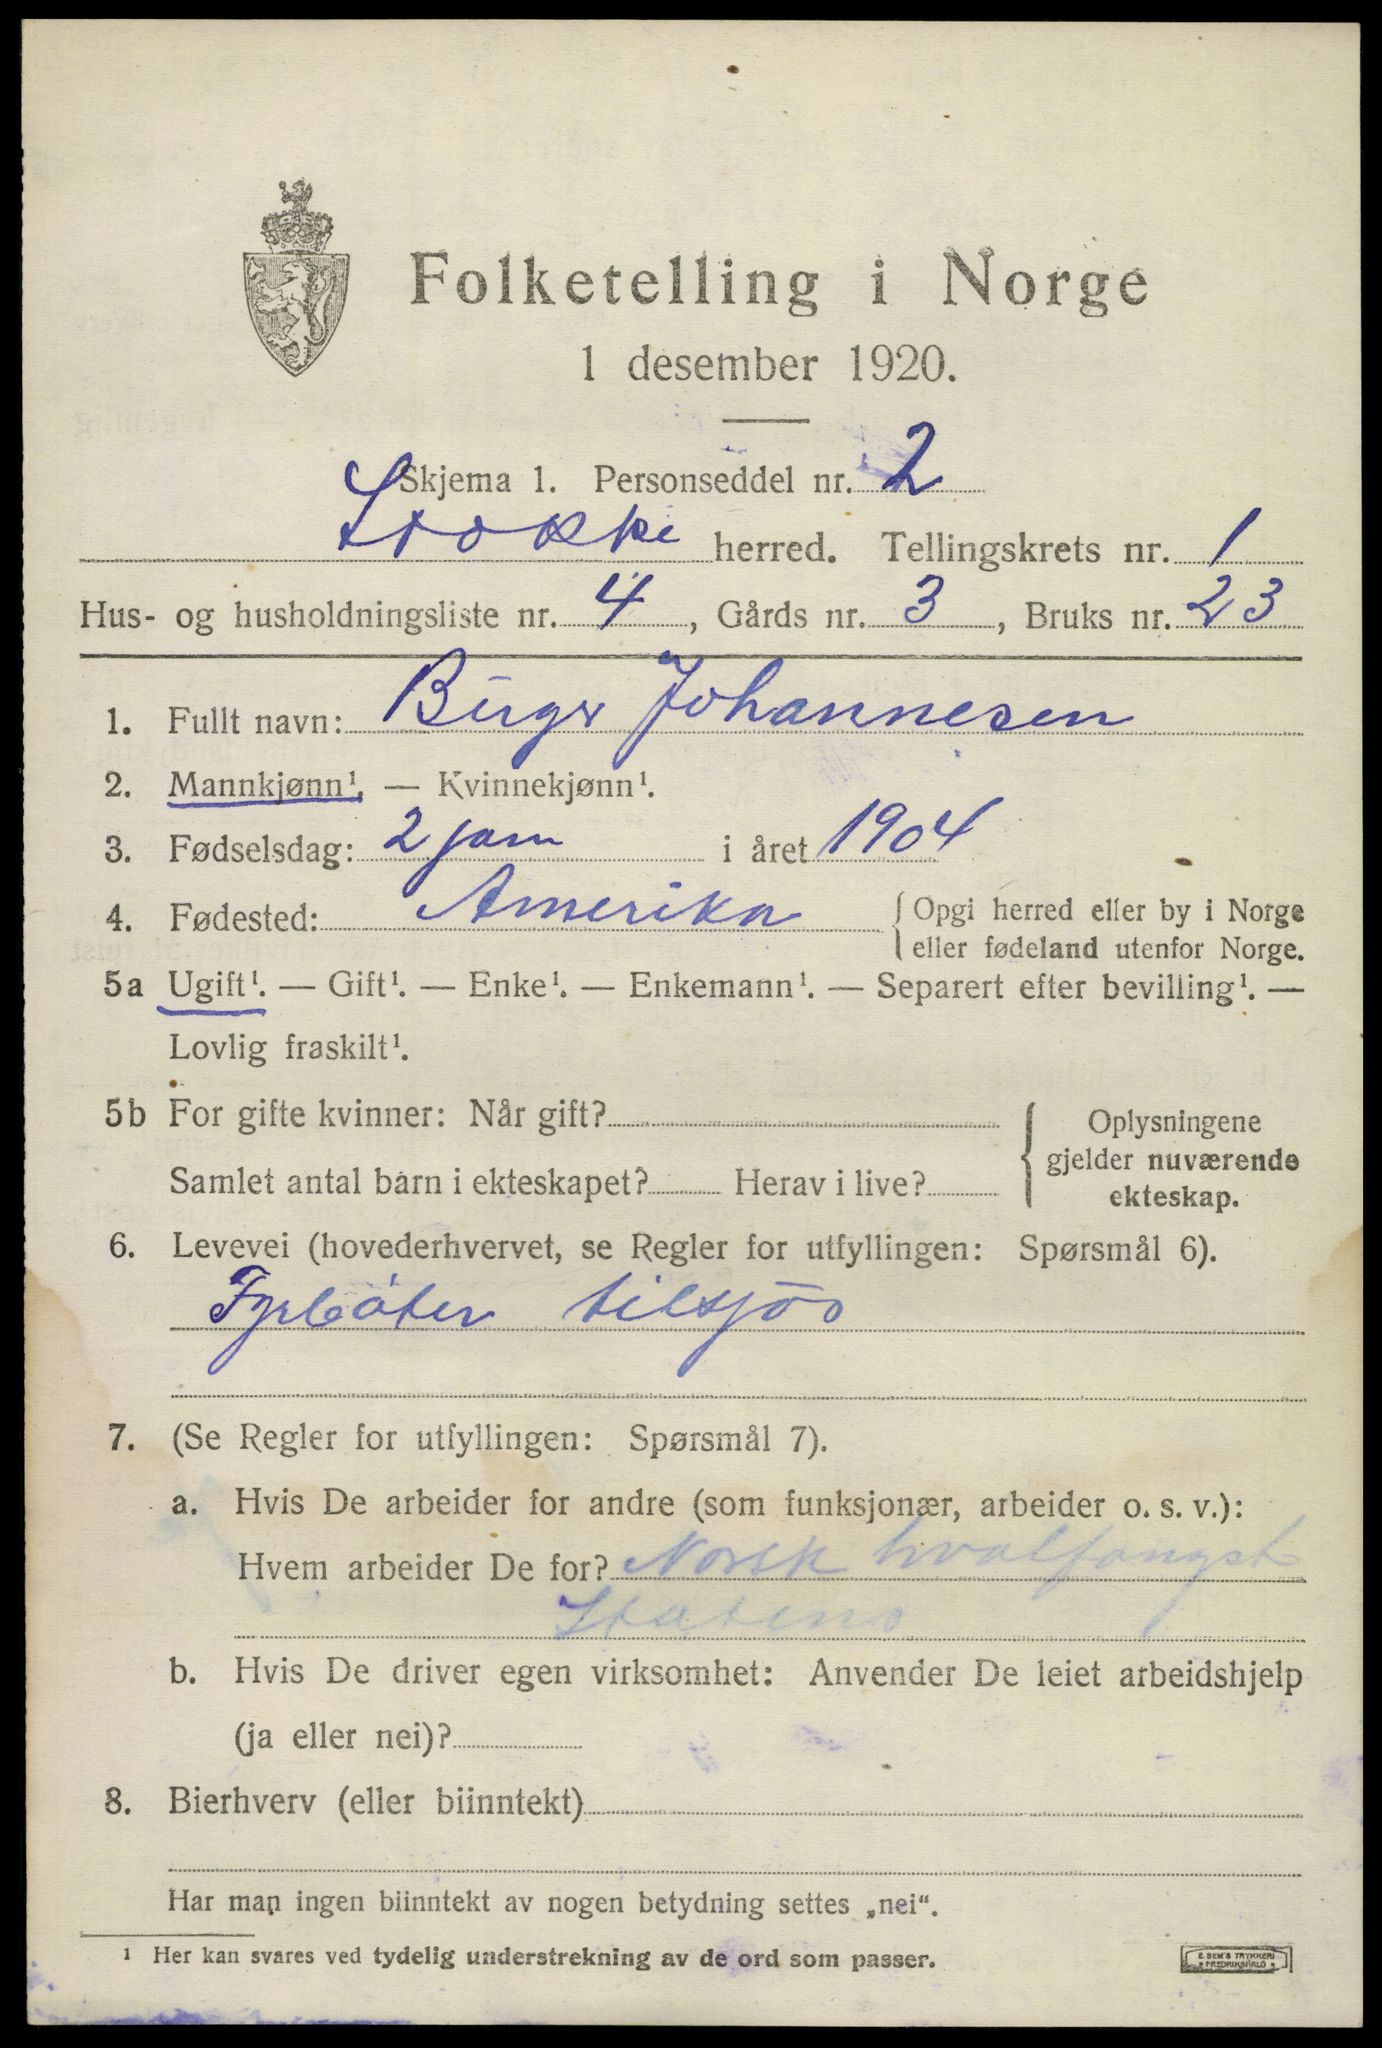 Folketelling i Norge
1 desember 1920.
Skjema 1. Personseddel nr. 2
Stokke herred. Tellingskrets nr. 1
Hus- og husholdningsliste nr. 4, Gårds nr. 3, Bruks nr. 23
1. Fullt navn: Birger Johannesen
2. Mannkjønn¹. — Kvinnekjønn¹.
3. Fødselsdag: 2 jan i året 1904
4. Fødested: Amerika { Opgi herred eller by i Norge
eller fødeland utenfor Norge.
5a Ugift¹. — Gift¹. — Enke¹. — Enkemann¹. — Separert efter bevilling¹. —
Lovlig fraskilt¹.
5b For gifte kvinner: Når gift?
Samlet antal barn i ekteskapet? Herav i live?
{ Oplysningene
gjelder nuværende
ekteskap.
6. Levevei (hovederhvervet, se Regler for utfyllingen: Spørsmål 6).
Fyrbøter tilsjøs
7. (Se Regler for utfyllingen: Spørsmål 7).
a. Hvis De arbeider for andre (som funksjonær, arbeider o. s. v.):
Hvem arbeider De for? Norsk hvalfangst
b. Hvis De driver egen virksomhet: Anvender De leiet arbeidshjelp
(ja eller nei)?
8. Bierhverv (eller biinntekt)
Har man ingen biinntekt av nogen betydning settes „nei“.
¹ Her kan svares ved tydelig understrekning av de ord som passer.
E. SEM'S TRYKKERI
FREDRIKSHALD